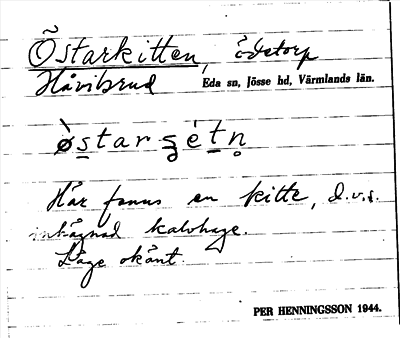 Östarkitten, ödetorp
Håvibrud Eda sn, Jösse hd, Värmlands län.
Här fanns en kitte, d.v.s.
inhägnad kalvhage.
Läge okänt.
PER HENNINGSSON 1944.